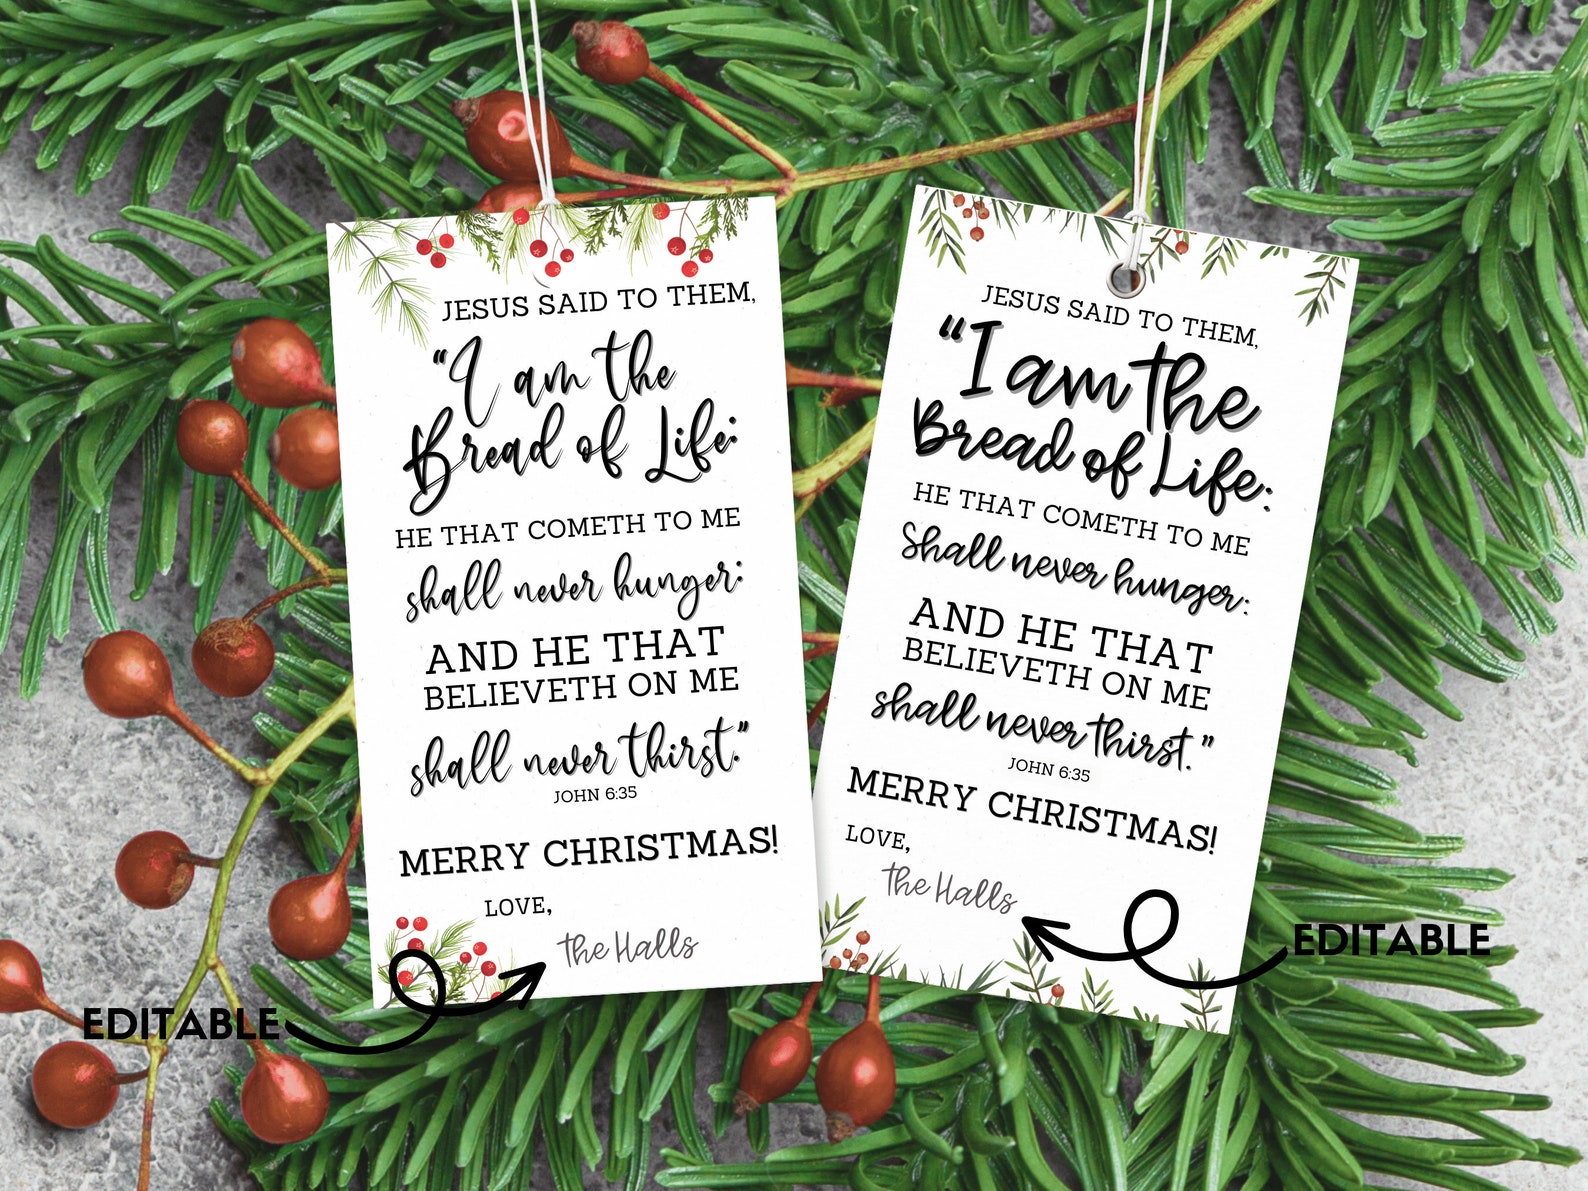 JESUS SAID TO THEM,
"I am the
Bread of Life:
HE THAT COMETH TO ME
shall never hunger:
AND HE THAT
BELIEVETH ON ME
shall never thirst."
JOHN 6:35
MERRY CHRISTMAS!
LOVE,
the Halls
EDITABLE
JESUS SAID TO THEM,
"I am the
Bread of Life:
HE THAT COMETH TO ME
Shall never hunger:
AND HE THAT
BELIEVETH ON ME
shall never thirst."
JOHN 6:35
MERRY CHRISTMAS!
LOVE,
the Halls
EDITABLE